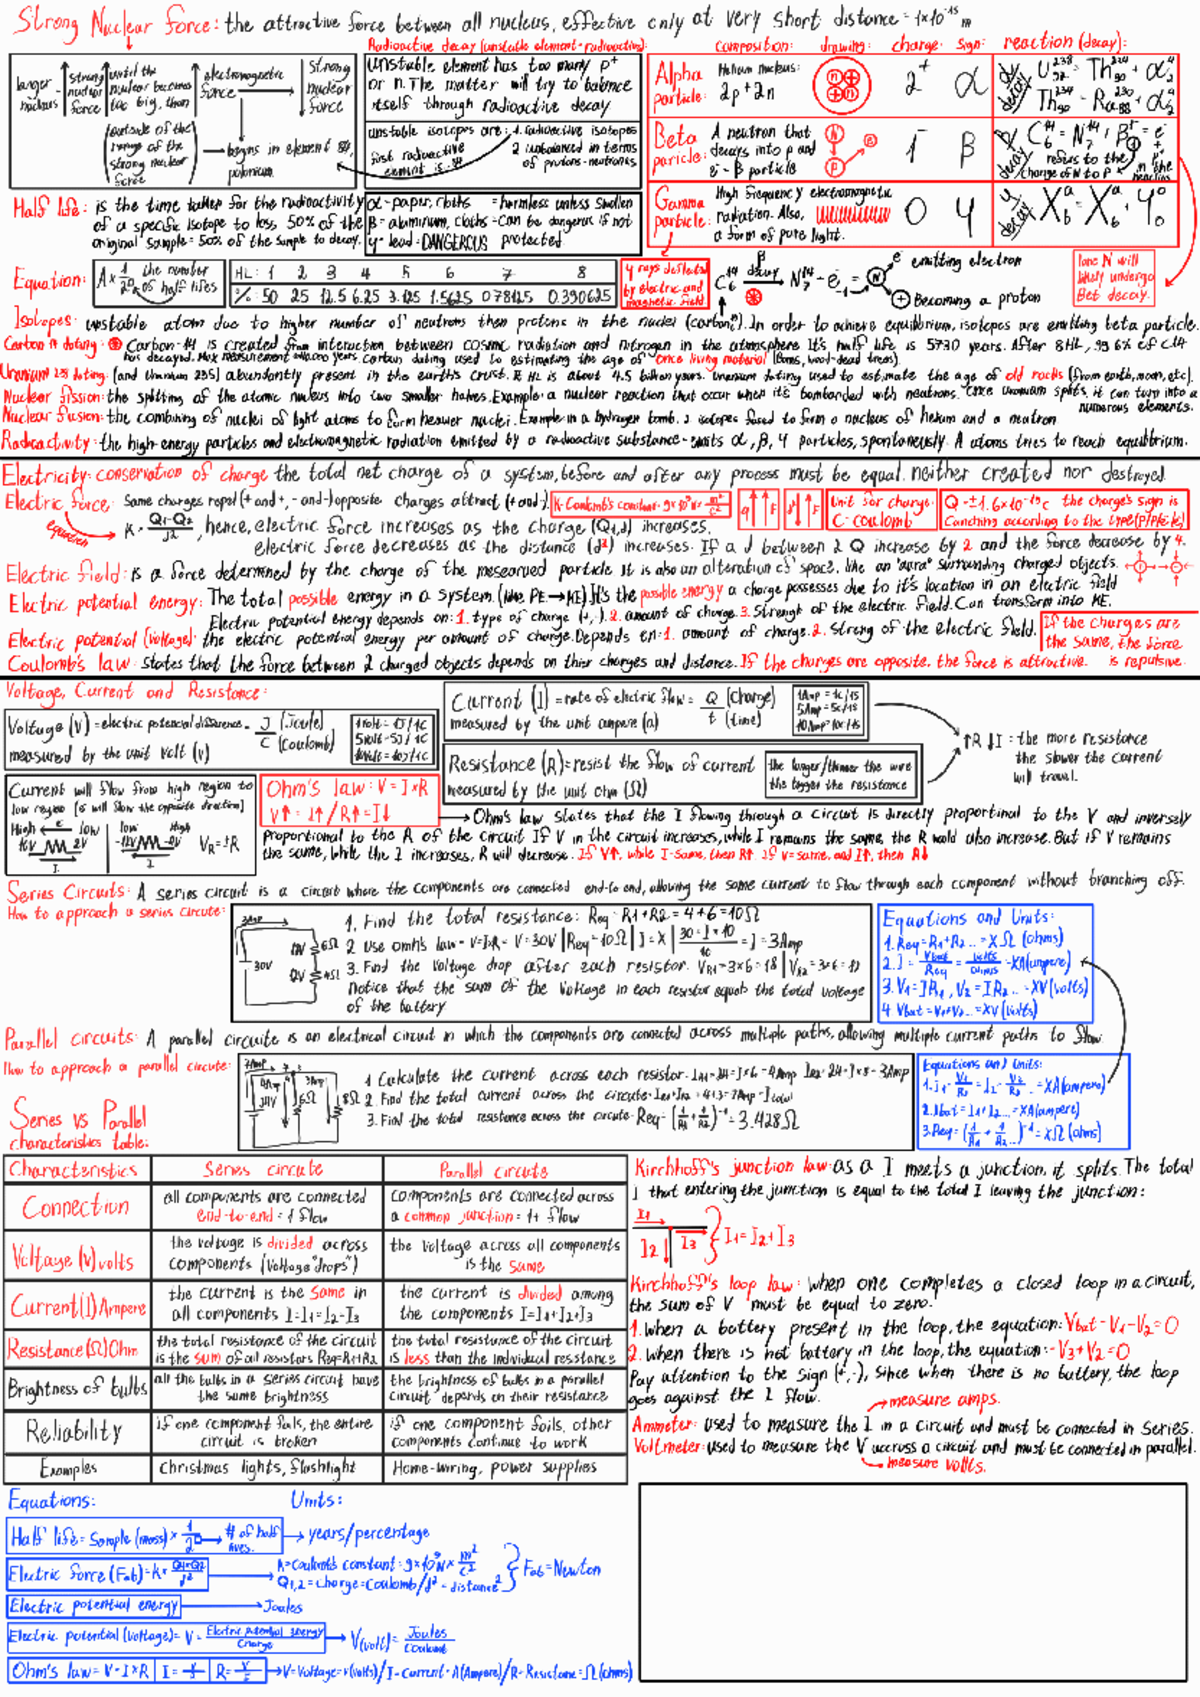 Strong Nuclear force: the attractive force between all nucleus, effective only at very short distance = 1×10⁻¹⁵ m
larger nucleus
strong nuclear force
until the nuclear becomes too big, then
electromagnetic force
strong nuclear force
(outside of the range of the strong nuclear force
begins in element 84, polonium.
Radioactive decay (unstable element = radioactive):
unstable element has too many p⁺
or n. The matter will try to balance
itself through radioactive decay
unstable isotopes are: 1. radioactive isotopes
2 imbalanced in terms
of protons-neutrons
first radioactive element is 84
composition: drawing: charge: sign: reaction (decay):
Alpha particle: Helium nucleus: 2p+2n 2⁺ α
Beta paricle: A neutron that decays into p and e⁻ = β particle 1⁻ β
refers to the change of N to P
Gamma particle: High frequency electromagnetic radiation. Also, a form of pure light. 0
Half life: is the time taken for the radioactivity
of a specific isotope to loss, 50% of the
original sample = 50% of the sample to decay.
α - paper, cloths = harmless unless swollen
β = aluminum, cloths = can be dangerous if not
γ = lead = DANGEROUS protected
Equation: A × 1/2ⁿ the number of half lifes
HL: 1 2 3 4 5 6 7 8
%: 50 25 12.5 6.25 3.125 1.5625 0.78125 0.390625
γ rays deflected
by electric and
magnetic field
decay
emitting electron
Becoming a proton
Isos N will
likely undergo
Bet decay.
Isotopes: unstable atom due to higher number of neutrons then protons in the nuclei (carbon¹⁴). In order to achieve equilibrium, isotopes are emitting beta particle.
Carbon 14 dating: Carbon-14 is created from interaction between cosmic radiation and nitrogen in the atmosphere It's half life is 5730 years. After 8HL, 99.6% of C14
has decayed. carbon dating used to estimating the age of once living material (Bones, wood-dead trees).
Uranium 238 dating: (and Uranium 235) abundantly present in the earth's crust. It HL is about 4.5 billion years. uranium dating used to estimate the age of old rocks (from earth, moon, etc).
Nuclear fission: the splitting of the atomic nucleus into two smaller halves. Example: a nuclear reaction that occur when it's bombarded with neutrons. Once uranium splits, it can turn into a
numerous elements.
Nuclear fusion: the combining of nuclei of light atoms to form heavier nuclei. Example: in a hydrogen bomb, 2 isotopes fused to form a nucleus of helium and a neutron
Radioactivity: the high-energy particles and electromagnetic radiation emitted by a radioactive substance - emits α, β, γ particles, spontaneously. A atoms tries to reach equilibrium.
Electricity: conservation of charge the total net charge of a system, before and after any process must be equal. neither created nor destroyed.
Electric force: Same charges ropel (+ and +, - and -) opposite charges attract, (+ and -).
K = Coulomb's constant = 9×10⁹ N × m²/C²
unit for charge: C = coulomb
Q = ±1.6×10⁻¹⁹ c the charge's sign is
equation
hence, electric force increases as the charge (Q1,2) increases.
electric force decreases as the distance (d²) increases. If a d between 2 Q increase by 2 and the force decrease by 4.
Electric field: is a force determined by the charge of the mesearued particle It is also an alteration of space. like an "aura" surrunding charged objects.
Electric potential energy: The total possible energy in a system. It's the possible energy a charge possesses due to it's location in an electric field
Electric potential energy depends on: 1. type of charge (+, -). 2. amount of charge. 3. Strengh of the electric field. Can transform into KE.
Electric potential (voltage): the electric potential energy per amount of charge. Depends on: 1. amount of charge. 2. Streng of the electric field.
If the charges are
the same, the force
is repulsive.
Coulomb's law: States that the force between 2 charged objects depends on thier charges and distance. If the charges are opposite, the force is attractive.
Voltage, Current and Resistance:
Voltage (V) = electric potencial difference = J (Joule) / C (Coulomb)
measured by the unit volt (v)
1 volt = 1J/1C
5 volt = 5J/1C
10 volt = 10J/1C
Current (I) = rate of electric flow = Q (charge) / t (time)
measured by the unit ampere (a)
1Amp = 1c/1s
5Amp = 5c/1s
10Amp = 10c/1s
Resistance (R) = resist the flow of current
measured by the unit ohm (Ω)
the larger/thinner the wire
the bigger the resistance
↑R ↓I : the more resistance
the slower the current
will travel.
Current will flow from high region to
low region [e will flow the opposite direction]
High low low High
V_R = IR
Ohm's law: V = I×R
V↑ = I↑ / R↑ = I↓
Ohm's law states that the I flowing through a circuit is directly proportinal to the V and inversely
proportional to the R of the circuit If V in the circuit increases, while I remains the same, the R would also increase. But if V remains
the same, while the I increases, R will decrease. If V↑, while I = same, then R↑ If v = same, and I↑, then R↓
Series Circuits: A series circuit is a circuit where the components are connected end-to end, allowing the same current to flow through each component without branching off.
How to approach a series circute:
3Amp
30V
6Ω
4Ω
1. Find the total resistance: Req = R1+R2 = 4+6 = 10Ω
2 Use omh's law = V=I×R = V=30V | Req=10Ω | I=X | 30 = I×10 / 10 = I = 3Amp
3. Find the voltage drop after each resistor. VR1 = 3×6=18 | VR2 = 3×4=12
notice that the sum of the voltage in each resistor equals the total voltage
of the battery
Equations and Units:
1. Req = R1+R2... = XΩ (ohms)
2. I = Vbat/Req = volts/ohms = XA (ampere)
3. V1 = IR1, V2 = IR2... = XV (volts)
4 Vbat = V1+V2... = XV (volts)
Parallel circuits: A parallel circuite is an electrical circuit in which the components are connected across multiple paths, allowing multiple current paths to flow.
How to approach a parallel circute:
7Amp
4Amp
3Amp
24V
6Ω
8Ω
1 Calculate the current across each resistor.
2. Find the total current across the circute = = 4+3 = 7Amp = Itotal
3. Find the total resistance across the circute Req = (1/R1 + 1/R2)⁻¹ = 3.428Ω
Equations and Units:
1. I1 = V1/R1 = I2 = V2/R2 ... = XA (ampere)
2. Ibat = I1+I2... = XA (ampere)
3. Req = (1/R1 + 1/R2...)⁻¹ = XΩ (ohms)
Series vs Parallel
characteristics table:
Characteristics Series circute Parallel circute
Connection all components are connected end-to-end = 1 flow components are connected across a common junction = 1+ flow
Voltage (V) volts the voltage is divided across components (voltage "drops") the voltage across all components is the same
Current (I) Ampere the current is the same in all components I=I1=I2=I3 the current is divided among the components I=I1+I2+I3
Resistance (Ω) Ohm the total resistance of the circuit is the sum of all resistors Req=R1+R2 the total resistance of the circuit is less than the individual resstance
Brightness of bulbs all the bulbs in a series circuit have the same brightness the brightness of bulbs in a parallel circuit, depends on their resistance
Reliability if one component fails, the entire circuit is broken if one component foils, other components continue to work
Examples christmas lights, flashlight Home-wiring, power supplies
Kirchhoff's junction law: as a I meets a junction, it splits. The total
I that entering the junction is equal to the total I leaving the junction:
I1
I2
I3
I1 = I2+I3
Kirchhoff's loop law: when one completes a closed loop in a circuit,
the sum of V must be equal to zero.
1. when a battery present in the loop, the equation: Vbat - V1 - V2 = 0
2. when there is not battery in the loop, the equation: -V3+V2=0
Pay attention to the sign (+,-), since when there is no battery, the loop
goes against the I flow.
measure amps.
Ammeter: used to measure the I in a circuit and must be connected in series.
Voltmeter: used to measure the V accross a circuit and must be connected in parallel.
measure volts.
Equations: Units:
Half life = Sample (mass) × 1/2 # of half lives. years/percentage
Electric force (Fab) = K × Q1×Q2/d²
K = Coulomb's constant = 9×10⁹ N × m²/C²
Q1,2 = charge = Coulomb / d² = distance²
Fab = Newton
Electric potential energy Joules
Electric potential (voltage) = V = Electric potential energy / Charge V (volt) = Joules / Coulomb
Ohm's law = V = I×R | I = V/R | R = V/I V = Voltage = v (volts) / I = Current = A (Ampere) / R = Resistance = Ω (ohms)